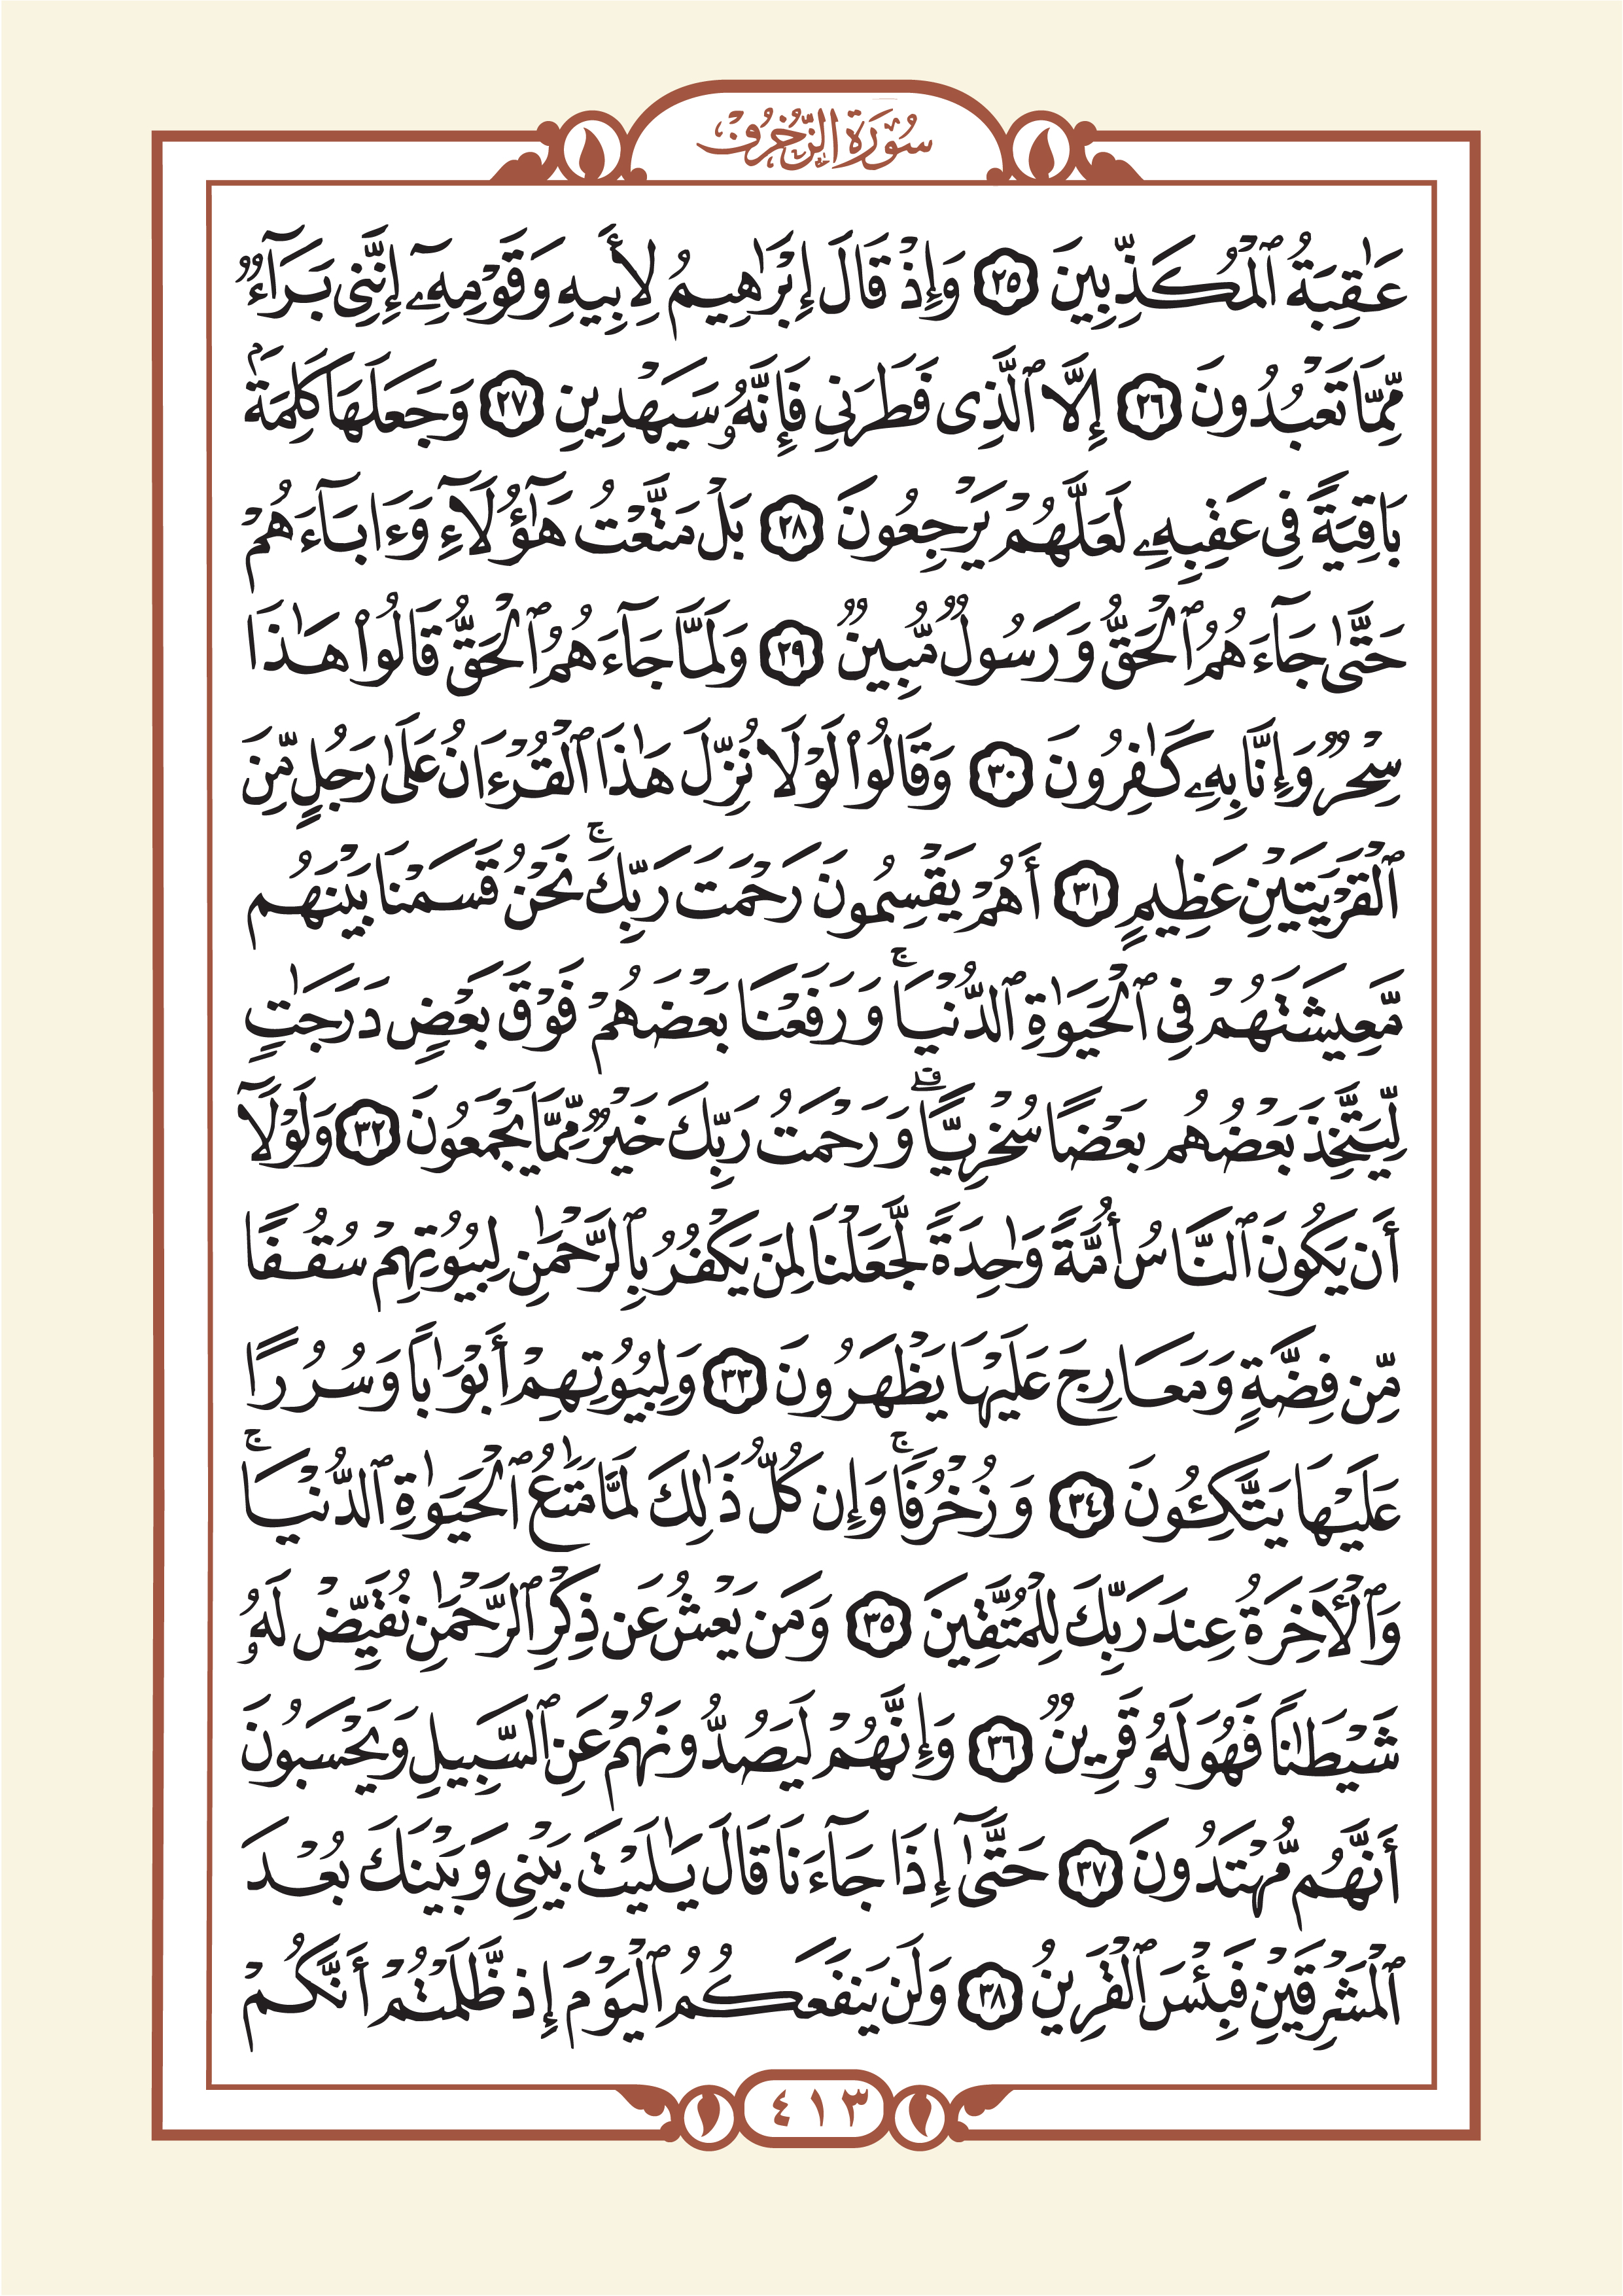 سُورَةُ الزُّخْرُفِ
عَٰقِبَةُ ٱلْمُكَذِّبِينَ ٢٥ وَإِذْ قَالَ إِبْرَٰهِيمُ لِأَبِيهِ وَقَوْمِهِۦٓ إِنَّنِى بَرَآءٌ
مِّمَّا تَعْبُدُونَ ٢٦ إِلَّا ٱلَّذِى فَطَرَنِى فَإِنَّهُۥ سَيَهْدِينِ ٢٧ وَجَعَلَهَا كَلِمَةًۢ
بَاقِيَةً فِى عَقِبِهِۦ لَعَلَّهُمْ يَرْجِعُونَ ٢٨ بَلْ مَتَّعْتُ هَٰٓؤُلَآءِ وَءَابَآءَهُمْ
حَتَّىٰ جَآءَهُمُ ٱلْحَقُّ وَرَسُولٌ مُّبِينٌ ٢٩ وَلَمَّا جَآءَهُمُ ٱلْحَقُّ قَالُوا۟ هَٰذَا
سِحْرٌ وَإِنَّا بِهِۦ كَٰفِرُونَ ٣٠ وَقَالُوا۟ لَوْلَا نُزِّلَ هَٰذَا ٱلْقُرْءَانُ عَلَىٰ رَجُلٍ مِّنَ
ٱلْقَرْيَتَيْنِ عَظِيمٍ ٣١ أَهُمْ يَقْسِمُونَ رَحْمَتَ رَبِّكَ ۚ نَحْنُ قَسَمْنَا بَيْنَهُم
مَّعِيشَتَهُمْ فِى ٱلْحَيَوٰةِ ٱلدُّنْيَا ۚ وَرَفَعْنَا بَعْضَهُمْ فَوْقَ بَعْضٍ دَرَجَٰتٍ
لِّيَتَّخِذَ بَعْضُهُم بَعْضًا سُخْرِيًّا ۗ وَرَحْمَتُ رَبِّكَ خَيْرٌ مِّمَّا يَجْمَعُونَ ٣٢ وَلَوْلَآ
أَن يَكُونَ ٱلنَّاسُ أُمَّةً وَٰحِدَةً لَّجَعَلْنَا لِمَن يَكْفُرُ بِٱلرَّحْمَٰنِ لِبُيُوتِهِمْ سُقُفًا
مِّن فِضَّةٍ وَمَعَارِجَ عَلَيْهَا يَظْهَرُونَ ٣٣ وَلِبُيُوتِهِمْ أَبْوَٰبًا وَسُرُرًا
عَلَيْهَا يَتَّكِـُٔونَ ٣٤ وَزُخْرُفًا ۚ وَإِن كُلُّ ذَٰلِكَ لَمَّا مَتَٰعُ ٱلْحَيَوٰةِ ٱلدُّنْيَا ۚ
وَٱلْـَٔاخِرَةُ عِندَ رَبِّكَ لِلْمُتَّقِينَ ٣٥ وَمَن يَعْشُ عَن ذِكْرِ ٱلرَّحْمَٰنِ نُقَيِّضْ لَهُۥ
شَيْطَٰنًا فَهُوَ لَهُۥ قَرِينٌ ٣٦ وَإِنَّهُمْ لَيَصُدُّونَهُمْ عَنِ ٱلسَّبِيلِ وَيَحْسَبُونَ
أَنَّهُم مُّهْتَدُونَ ٣٧ حَتَّىٰٓ إِذَا جَآءَنَا قَالَ يَٰلَيْتَ بَيْنِى وَبَيْنَكَ بُعْدَ
ٱلْمَشْرِقَيْنِ فَبِئْسَ ٱلْقَرِينُ ٣٨ وَلَن يَنفَعَكُمُ ٱلْيَوْمَ إِذ ظَّلَمْتُمْ أَنَّكُمْ
٤١٣